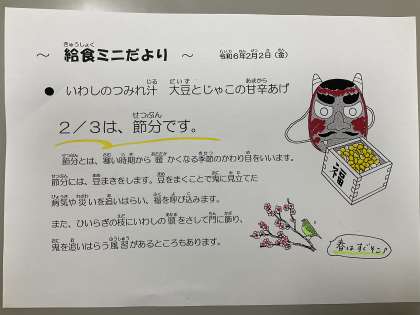 ～ 給食ミニだより ～ 令和6年2月2日（金）
● いわしのつみれ汁　大豆とじゃこの甘辛あげ
２／３は、節分です。
節分とは、寒い時期から暖かくなる季節のかわり目をいいます。
節分には、豆まきをします。豆をまくことで鬼に見立てた
病気や災いを追いはらい、福を呼び込みます。
また、ひいらぎの枝にいわしの頭をさして門に飾り、
鬼を追いはらう風習があるところもあります。
福
春はすぐそこ♪